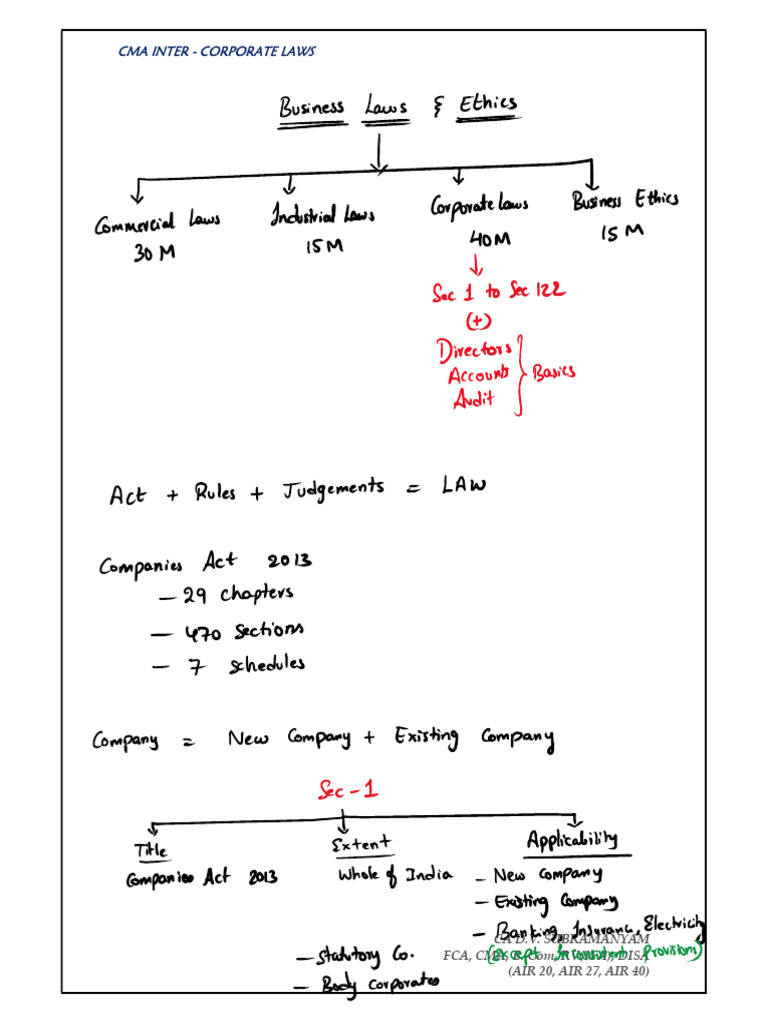 CMA INTER - CORPORATE LAWS
Business Laws & Ethics
Commercial Laws Industrial Laws Corporate Laws Business Ethics
30 M 15 M 40 M 15 M
Sec 1 to Sec 122
(+)
Directors
Accounts Basics
Audit
Act + Rules + Judgements = LAW
Companies Act 2013
- 29 chapters
- 470 sections
- 7 schedules
Company = New Company + Existing Company
Sec - 1
Title Extent Applicability
Companies Act 2013 Whole of India - New Company
- Existing Company
- Banking, Insuranc, Electricity
CA D.V. SUBRAMANYAM
(Except Inconsistent Provisions)
FCA, CMA, DISA
- Statutory Co.
(AIR 20, AIR 27, AIR 40)
- Body Corporates